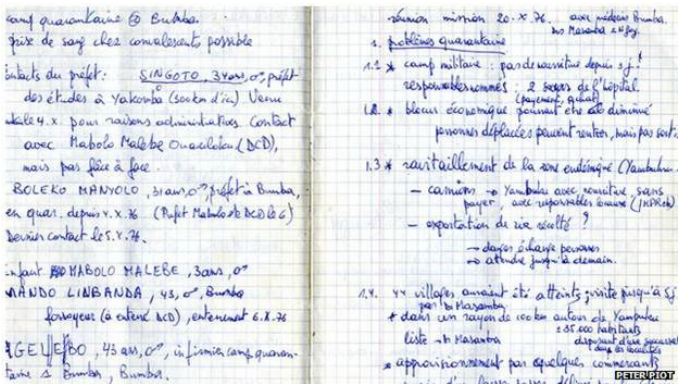 camp quarantaine @ Bumba.
prise de sang chez convalescents possible
contacts du préfet: SINGOTO, 34 ans, ♂, préfet
des études à Yakombo (500km d'ici) Venu
4.x. pour raisons administratives. Contact
avec Mabolo Malebe (DCD),
mais pas face à face.
BOLEKO MANYOLO, 31 ans, ♂, préfet à Bumba,
en quar. depuis 4.x.76 (Préfet Mabolo DCD le 6)
Dernier contact le 5.X.76.
enfant MABOLO MALEBE, 3 ans, ♂
MANDO LINBANDA, 43, ♂, Bumba
fossoyeur (a enterré DCD), enterrement 6.X.76
43 ans, ♂, infirmier camp quaran-
taine à Bumba, Bumba.
réunion mission 20.X.76. avec médecins Bumba.
Masamba
1. problèmes quarantaine
1.1 * camp militaire: pas de nourriture depuis 3 j.!
responsables nommés: 2 de l'hôpital.
1.2. * blocus économique pourrait être diminué
personnes déplacées peuvent rentrer, mais pas sortir.
1.3 * ravitaillement de la zone endémique (Yambuku
- camions → Yambuku avec nourriture, sans
payer, avec responsables
- exportation de riz récolté?
→ danger échange personnes
→ attendre jusqu'à demain.
1.4. 44 villages auraient été atteints; visite jusqu'à 5 j.
par Masamba
* dans un rayon de 100km autour de Yambuku
± 35.000 habitants
liste → Masamba
disposant d'une
dans les localités
* approvisionnement par quelques commerçants
PETER PIOT